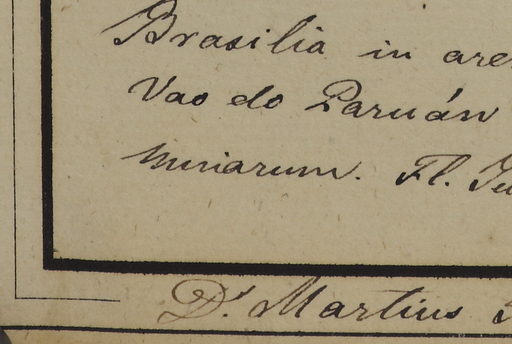 Brasilia in are
Vao do Paruán
Miniarum. Fl. Ju
Dr. Martius